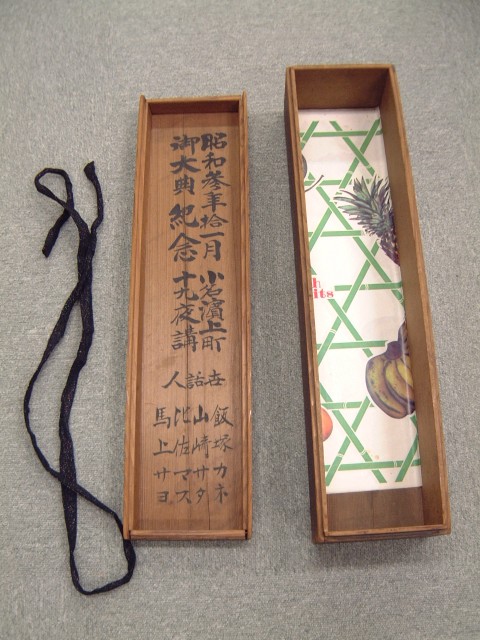 昭和参年拾一月 小名濱上町
御大典紀念 十九夜講
世話人
飯塚カネ
山崎サタ
比佐マス
馬上サヨ
its